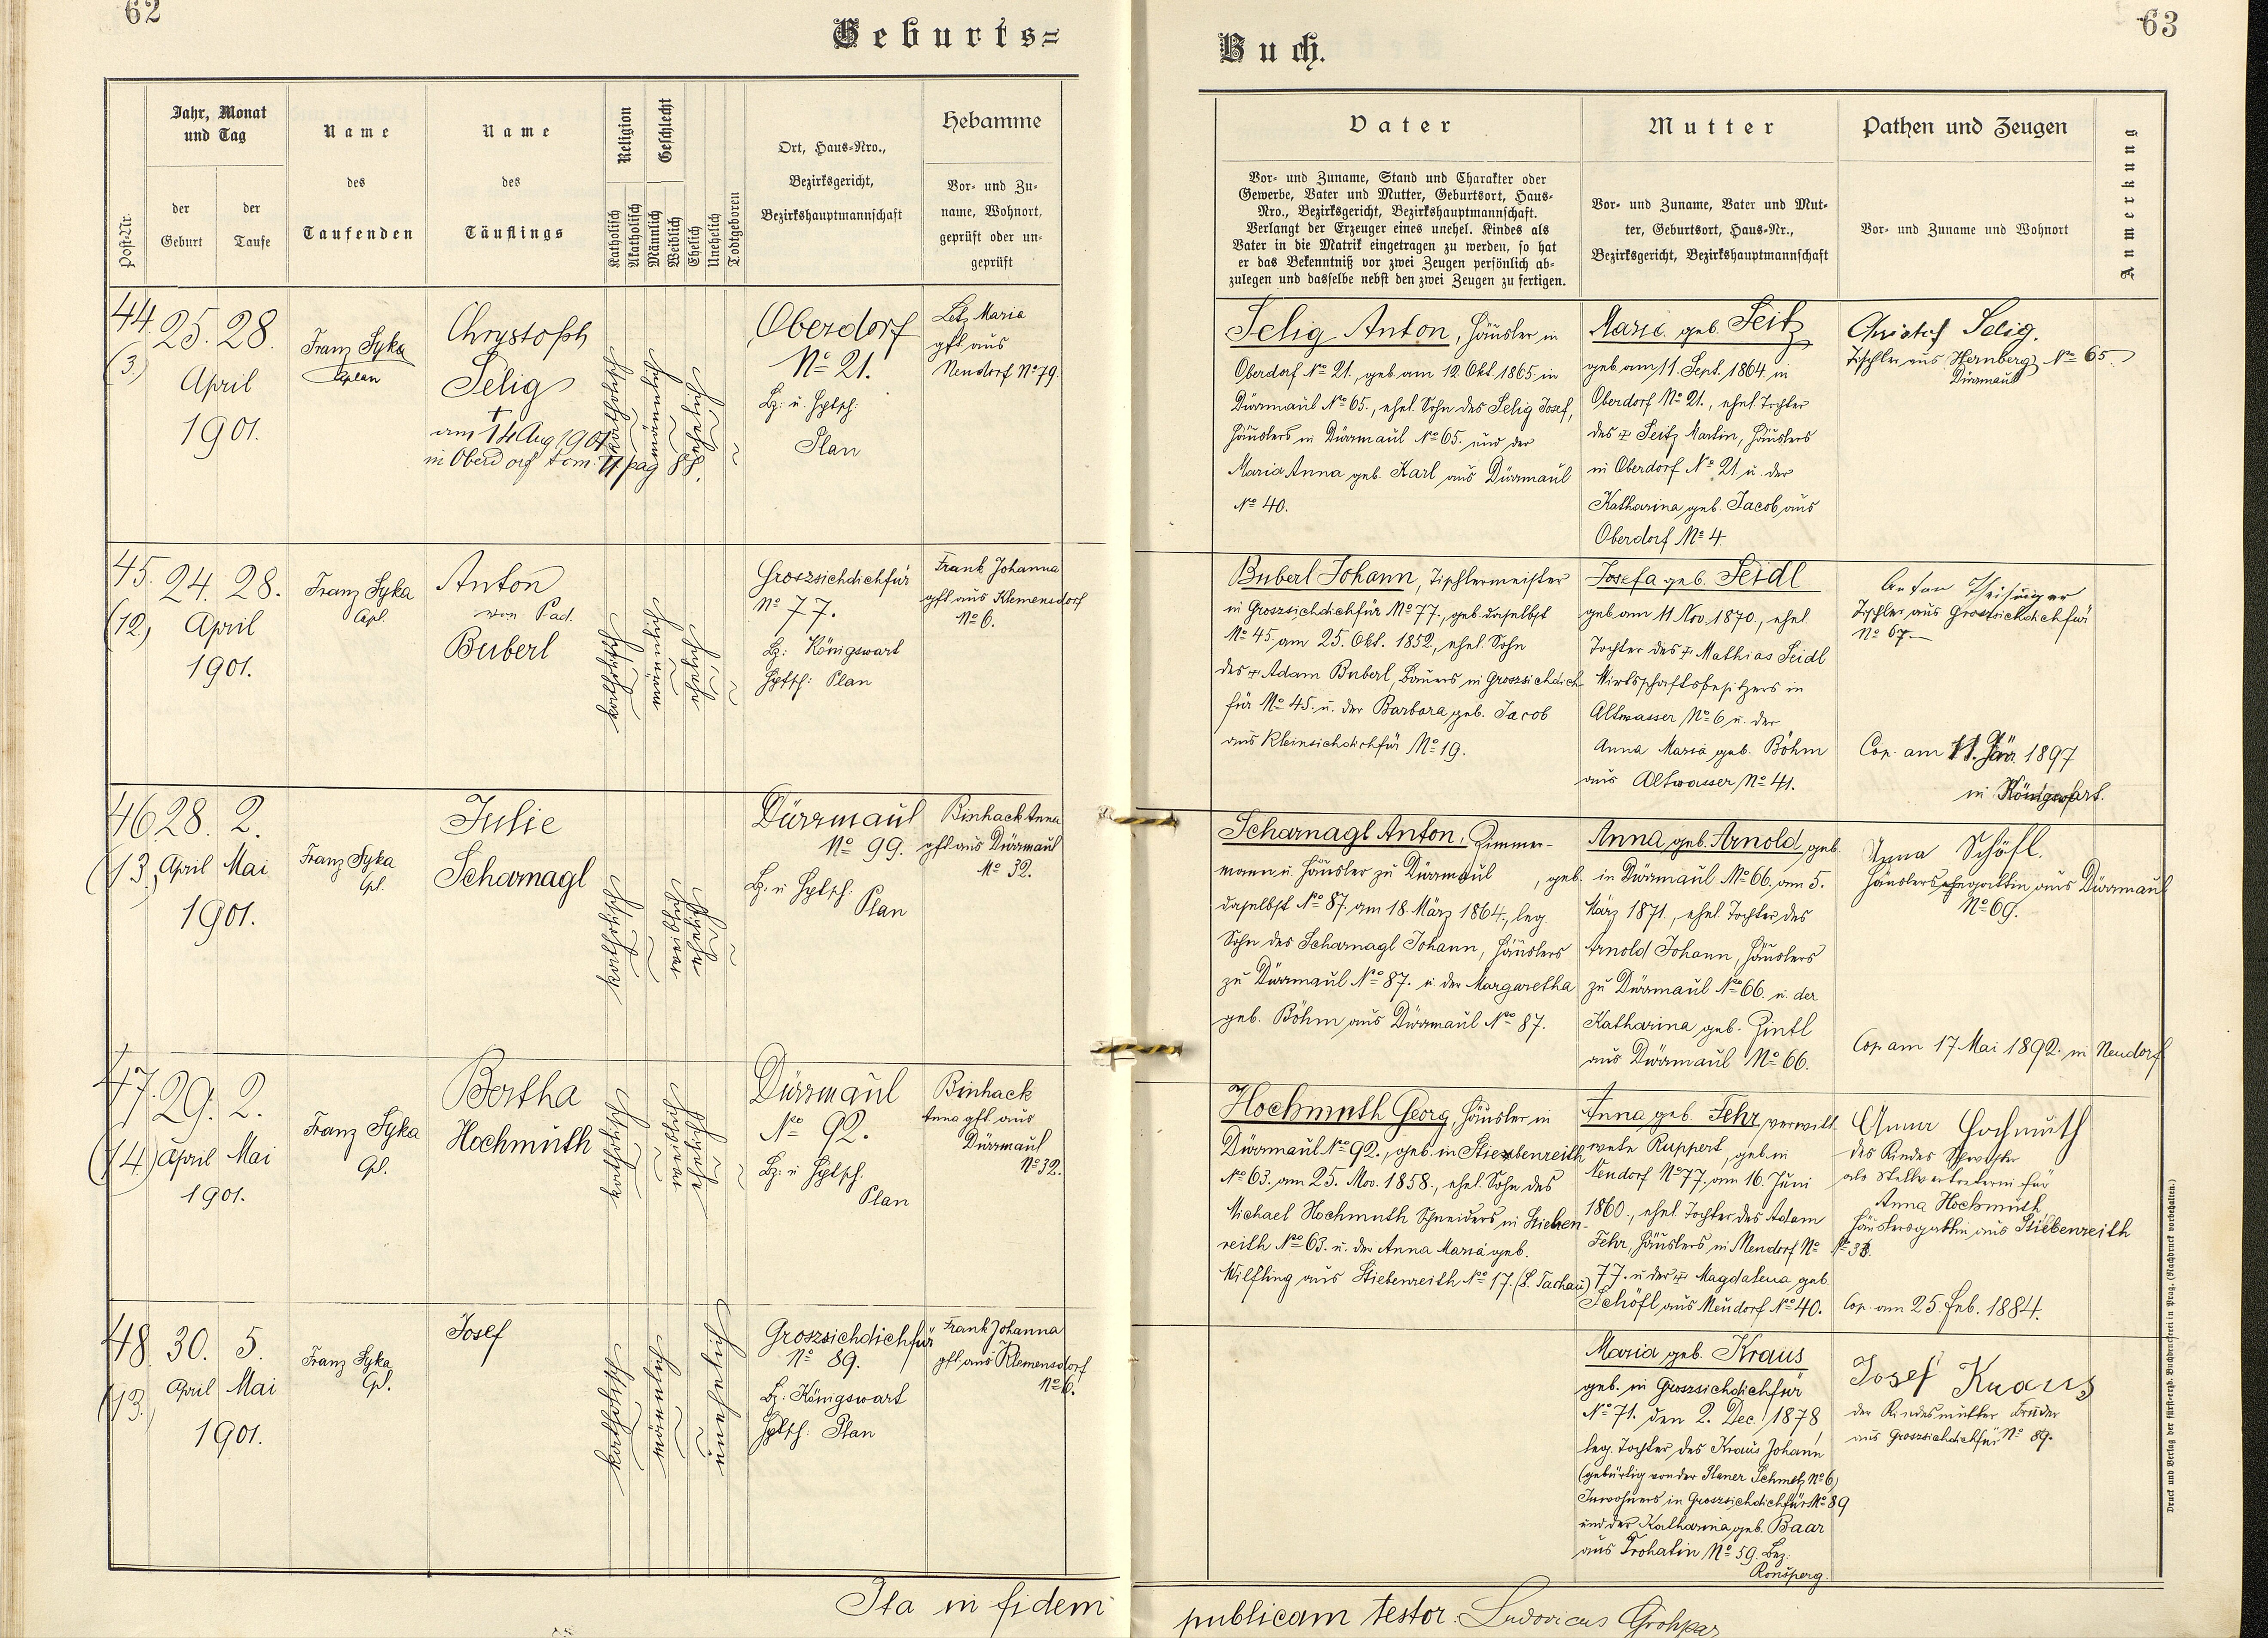 62
Geburts=
Post-Nr.
Jahr, Monat
und Tag
der
Geburt
der
Taufe
Name
des
Taufenden
Name
des
Täuflings
Religion
Katholisch
Akatholisch
Geschlecht
Männlich
Weiblich
Ehelich
Unehelich
Todtgeboren
Ort, Haus-Nro.,
Bezirksgericht,
Bezirkshauptmannschaft
Hebamme
Vor- und Zu-
name, Wohnort,
geprüft oder un-
geprüft
44.
(3.)
25. 28.
April
1901.
Franz Syka
Caplan
Chrystoph
Selig
†
am 14 Aug 1901
in Oberdorf tom. II pag 88.
katholisch
männlich
ehelich
Oberdorf
No 21.
Bz: u. Hptsch:
Plan
Maria
gpft aus
Neudorf No 79.
45.
(12.)
24. 28.
April
1901.
Franz Syka
Cpl.
Anton
von Pad.
Buberl
katholisch
männlich
ehelich
Groszsichdichfür
No 77.
Bz: Königswart
Hptsch: Plan
Frank Johanna
gpft. aus Klemensdorf
No 6.
46.
(13.)
28. 2.
April Mai
1901.
Franz Syka
Cpl.
Julie
Scharnagl
katholisch
weiblich
ehelich
Dürrmaul
No 99.
Bz. u Hptsch:
Plan
Binhack Anna
gpft aus Dürrmaul
No 32.
47.
(14.)
29. 2.
April Mai
1901.
Franz Syka
Cpl.
Bertha
Hochmuth
katholisch
weiblich
ehelich
Dürrmaul
No 92.
Bz: u Hptsch.
Plan
Binhack
Anna gpft. aus
Dürrmaul
No 32.
48.
(13.)
30. 5.
April Mai
1901.
Franz Syka
Cpl.
Josef
katholisch
männlich
unehelich
Groszsichdichfür
No 89.
Bz: Königswart
Hptsch: Plan
Frank Johanna
gpft. aus Klemensdorf
No 6.
Ita in fidem
63
Buch.
Vater
Vor- und Zuname, Stand und Charakter oder
Gewerbe, Vater und Mutter, Geburtsort, Haus-
Nro., Bezirksgericht, Bezirkshauptmannschaft.
Verlangt der Erzeuger eines unehel. Kindes als
Vater in die Matrik eingetragen zu werden, so hat
er das Bekenntniß vor zwei Zeugen persönlich ab-
zulegen und dasselbe nebst den zwei Zeugen zu fertigen.
Mutter
Vor- und Zuname, Vater und Mut-
ter, Geburtsort, Haus-Nr.,
Bezirksgericht, Bezirkshauptmannschaft
Pathen und Zeugen
Vor- und Zuname und Wohnort
Anmerkung
Selig Anton, Häusler in
Oberdorf No 21., geb. am 12. Okt. 1865 in
Dürrmaul No 65., ehel. Sohn des Selig Josef,
Häuslers in Dürrmaul No 65. und der
Maria Anna geb. Karl aus Dürrmaul
No 40.
Marie geb. Seitz
geb. am 11. Sept. 1864 in
Oberdorf No 21., ehel. Tochter
des † Seitz Martin, Häuslers
in Oberdorf No 21 u. der
Katharina geb. Jacob aus
Oberdorf No 4.
Christof Selig.
Tischler aus No 65
Dürmaul
Buberl Johann, Tischlermeister
in Groszsichdichfür No 77., geb. daselbst
No 45. am 25. Okt. 1852., ehel. Sohn
des † Adam Buberl, Bauers in Groszsichdich-
für No 45. u. der Barbara geb. Jacob
aus Kleinsichdichfür No 19.
Josefa geb. Seidl
geb. am 11 Nov. 1870., ehel.
Tochter des † Mathias Seidl
Wirtschaftsbesitzers in
Altwasser No 6 u. der
Anna Maria geb. Böhm
aus Altwasser No 41.
Anton Theisinger
Tischler aus Grossichdichfür
No 67
Cop. am 11. Jän. 1897
in Königswart.
Scharnagl Anton, Zimmer-
mann u. Häusler zu Dürrmaul, geb.
daselbst No 87. am 18. März 1864., leg.
Sohn des Scharnagl Johann, Häuslers
zu Dürrmaul No 87. u. der Margaretha
geb. Böhm aus Dürrmaul No 87.
Anna geb. Arnold geb.
in Dürrmaul No 66. am 5.
März 1871., ehel. Tochter des
Arnold Johann, Häuslers
zu Dürrmaul No 66. u. der
Katharina geb. Zintl
aus Dürrmaul No 66.
Anna Schöfl.
Häuslersehegattin aus Dürrmaul
No 69.
Cop. am 17 Mai 1892. in Neudorf
Hochmuth Georg, Häusler in
Dürrmaul No 92., geb. in Stiebenreith
No 63. am 25. Nov. 1858., ehel. Sohn des
Michael Hochmuth Schneiders in Stieben-
reith No 63. u. der Anna Maria geb.
Wilfling aus Stiebenreith No 17. (B. Tachau)
Anna geb. Fehr, verwitt-
wete Ruppert, geb. in
Neudorf No 77. am 16. Juni
1860., ehel. Tochter des Adam
Fehr, Häuslers in Neudorf No
77. u der † Magdalena geb.
Schöfl aus Neudorf No 40.
Anna Hochmuth
des Kindes Schwester
als Stellvertreterin für
Anna Hochmuth
Häuslersgattin aus Stiebenreith
Cop. am 25. Feb. 1884.
Maria geb. Kraus
geb. in Groszsichdichfür
No 71. den 2. Dec. 1878,
leg. Tochter des Kraus Johann
(gebürtig von der Planer Schmelz No 6)
Inwohners in Groszsichdichfür No 89
und der Katharina geb. Baar
aus Trohatin No 59. Bez:
Ronsperg.
Josef Kraus
der Kindesmutter Bruder
aus Groszsichdichfür No 89.
Druck und Verlag der fürst-erzb. Buchdruckerei in Prag. (Nachdruck vorbehalten.)
publicam testor. Ludovicus